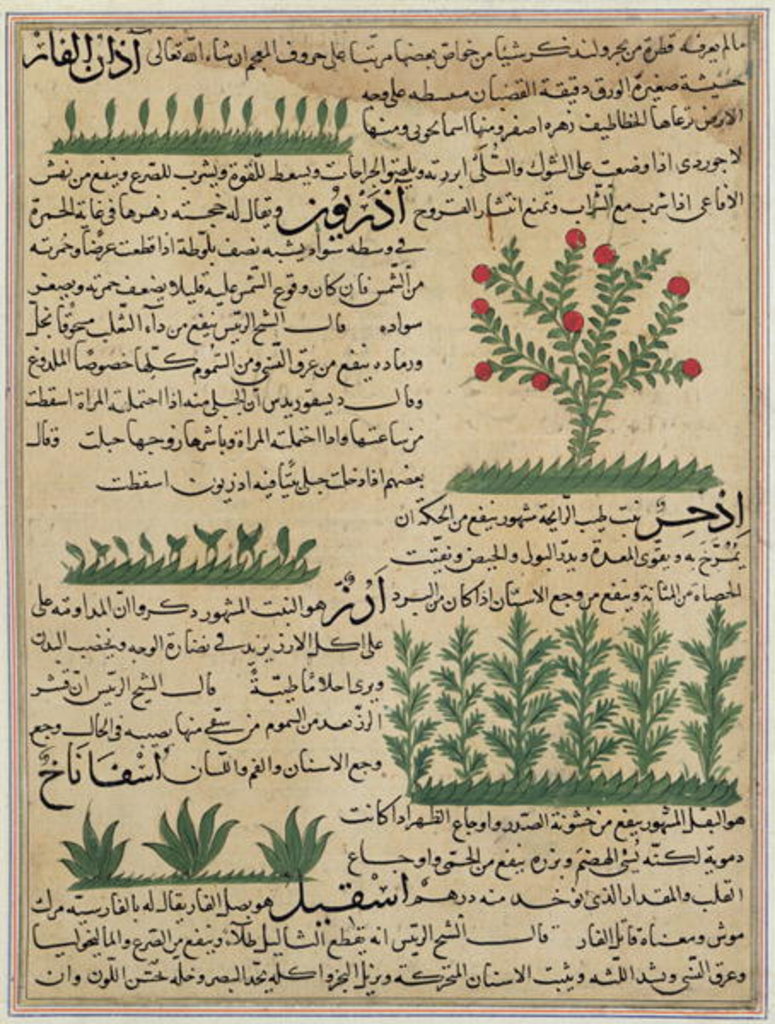 مالم يعرفه قطرة من بحر ولنذكر شيئا من خواص بعضها مرتبا على حروف المعجم ان شاء الله تعالى آذان الفار
حشيشة صغيرة الورق دقيقة القضبان منبسطه على وجه
الارض ترعاها الخطاطيف زهره اصفر ومنها اسمانجوني ومنها
لاجوردى اذا وضعت على الشوك والسلى ابرزته ويلصق الجراحات ويسعط للقوة ويشرب للصرع وينفع من نهش
الافاعى اذا شرب مع الشراب وتمنع انتشار القروح آذريون ويقال له خجسته زهرها في غاية الحمرة
في وسطه سواد يشبه نصف بلوطة اذا قطعت عرضا وحمرته
من الشمس فان كان وقوع الشمس عليه قليلا يضعف حمرته ويصغر
سواده قال الشيخ الرئيس ينفع من داء الثعلب مسحوقا بخل
ورماده ينفع من عرق النسى ومن السموم كلها خصوصا الملدوغ
وقال ديسقوريدس ان الحبلى منه اذا احتملته المراة اسقطت
من ساعتها واذا احتملته المراة وباشرها زوجها حبلت وقال
بعضهم اذا دخلت حبلى بيتا فيه اذريون اسقطت
اذخر نبت طيب الرايحة مشهور ينفع من الحكة ان
يتمرخ به ويقوى المعدة ويدر البول والحيض ويفتت
الحصاة من المثانة وينفع من وجع الاسنان اذا كان من البرد
أرز هو النبت المشهور ذكروا ان المداومة على
على اكل الارز يزيد في نضارة الوجه ويخصب البدن
ويرى احلاما طيبة قال الشيخ الرئيس ان قشر
الرز يعد من السموم من سقى منها يصيبه في الحال وجع
وجع الاسنان والفم واللسان اسفاناخ
هو البقل المشهور ينفع من خشونة الصدر واوجاع الظهر اذا كانت
دموية لكنه يسئ الهضم وبزره ينفع من الحمى واوجاع
القلب والمقدار الذى يوخذ منه درهم اسقيل هو بصل الفار يقال له بالفارسية مرك
موش ومعناه قاتل الفار قال الشيخ الرئيس انه يقطع الثاليل طلاء وينفع من الصرع والماليخوليا
وعرق النسى ويشد اللثه ويثبت الاسنان المتحركة ويزيل البخر واكله يحد البصر وخله يحسن اللون وان